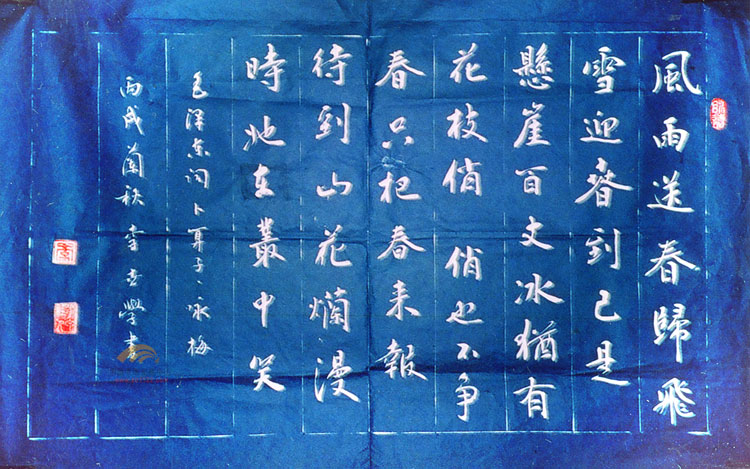 風雨送春歸飛
雪迎春到已是
懸崖百丈冰猶有
花枝俏 俏也不争
春只把春来報
待到山花爛漫
時她在叢中笑
毛泽东词卜算子、咏梅
丙戌蘭秋李志學书